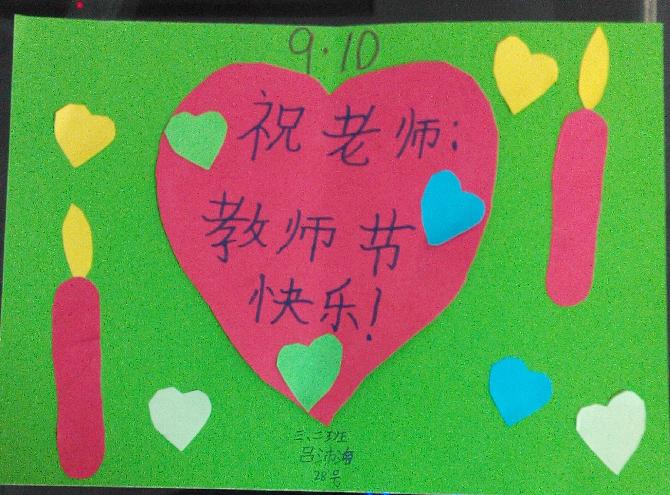 9·10
祝老师:
教师节
快乐!
三、二班
吕沛海
28号